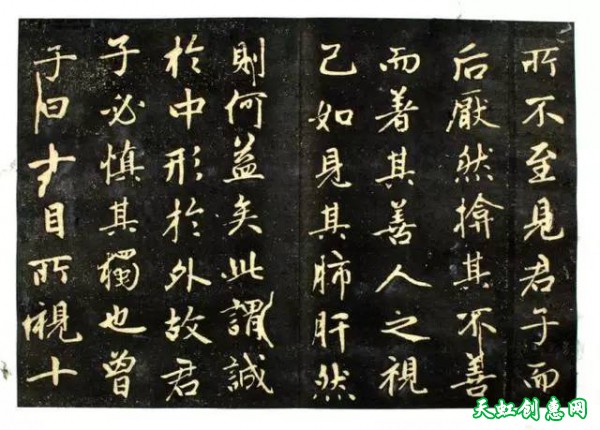 所不至見君子而
后厭然揜其不善
而著其善人之視
己如見其肺肝然
則何益矣此謂誠
於中形於外故君
子必慎其獨也曾
子曰十目所視十
天虹创意网